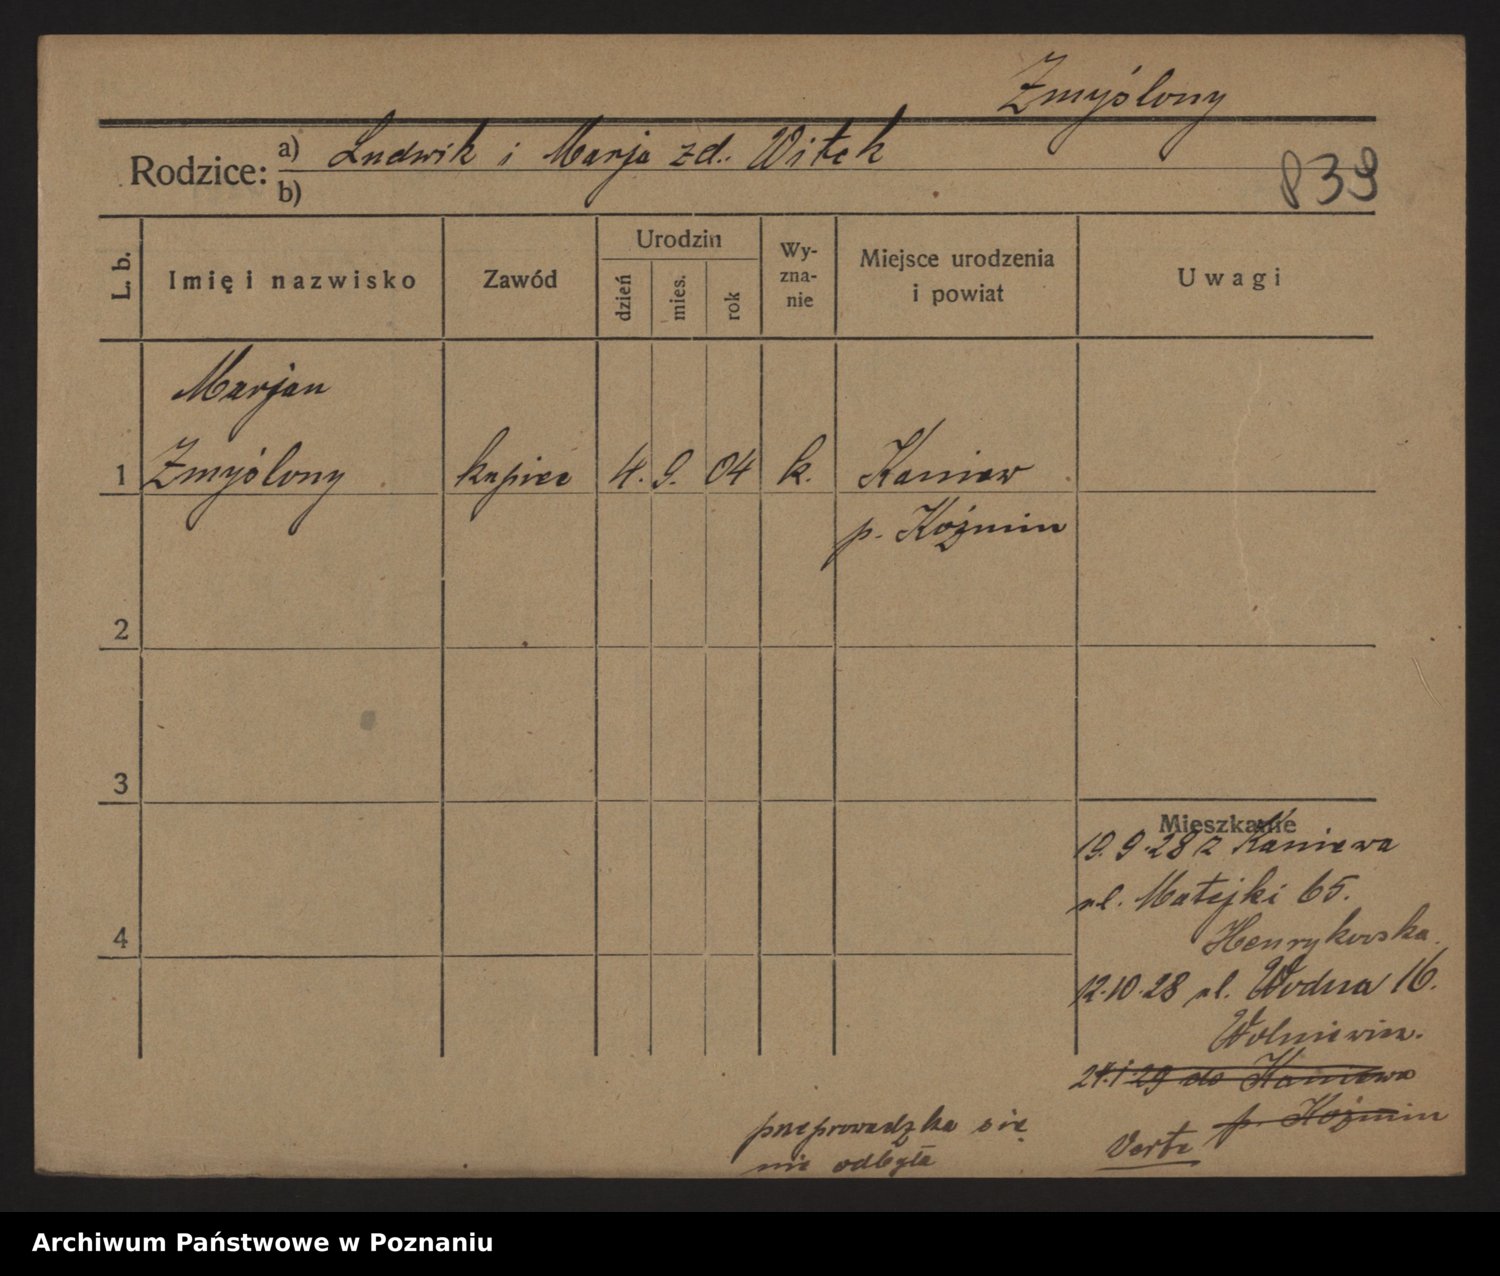 Zmyślony
Rodzice: a) Ludwik i Marja zd. Witek
b)
839
L. b.
Imię i nazwisko
Zawód
Urodzin
dzień
mies.
rok
Wy-
zna-
nie
Miejsce urodzenia
i powiat
Uwagi
Marjan
1 Zmyślony kupiec 4. 9. 04 k. Kaniew
p. Koźmin
2
3
Mieszkanie
19.9.28 z Kaniewa
ul. Matejki 65.
Henrykowska
4
12.10.28 ul. Wodna 16.
Wolniewicz.
24.1.29 do Kaniewa
p. Koźmin
przeprowadzka się
nie odbyła
Verte
Archiwum Państwowe w Poznaniu